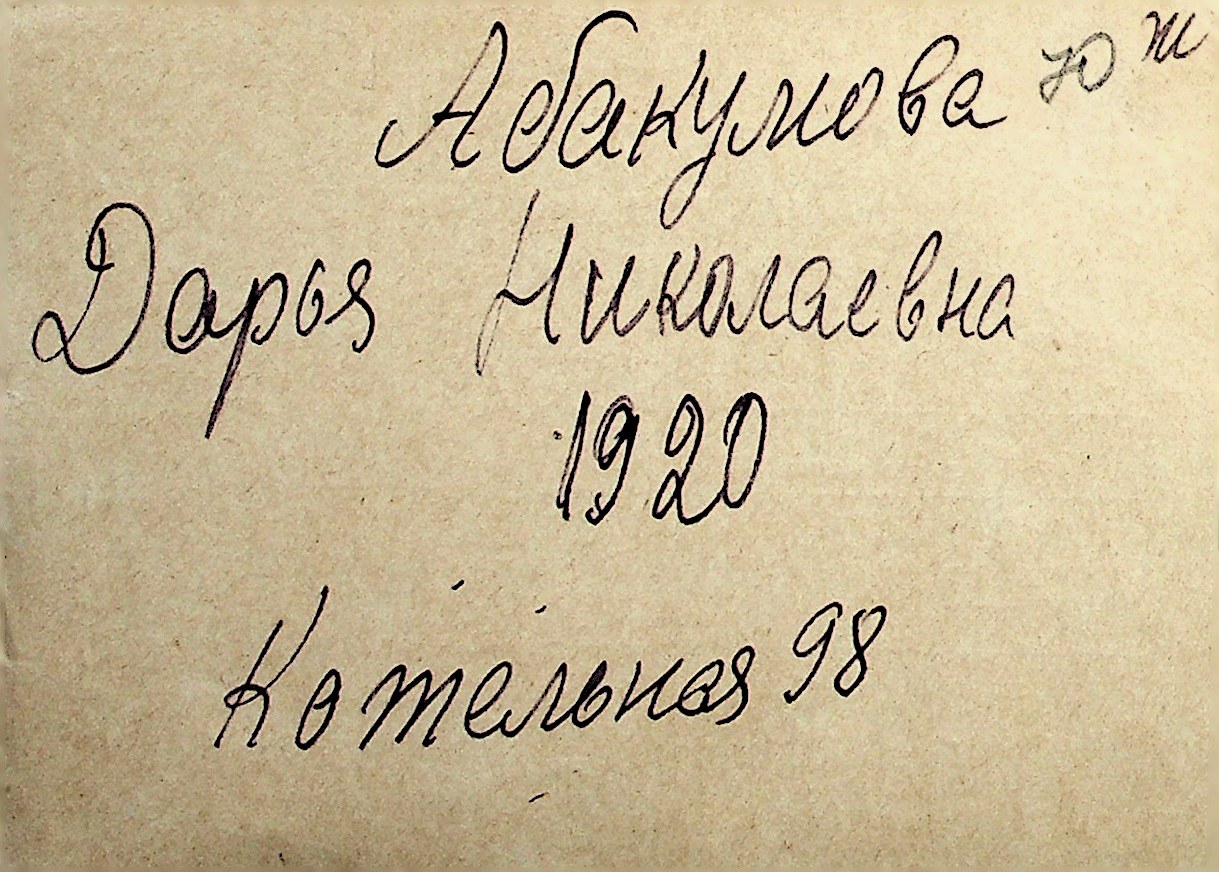 Абакумова Ю Ж
Дарья Николаевна
1920
Котельная 98